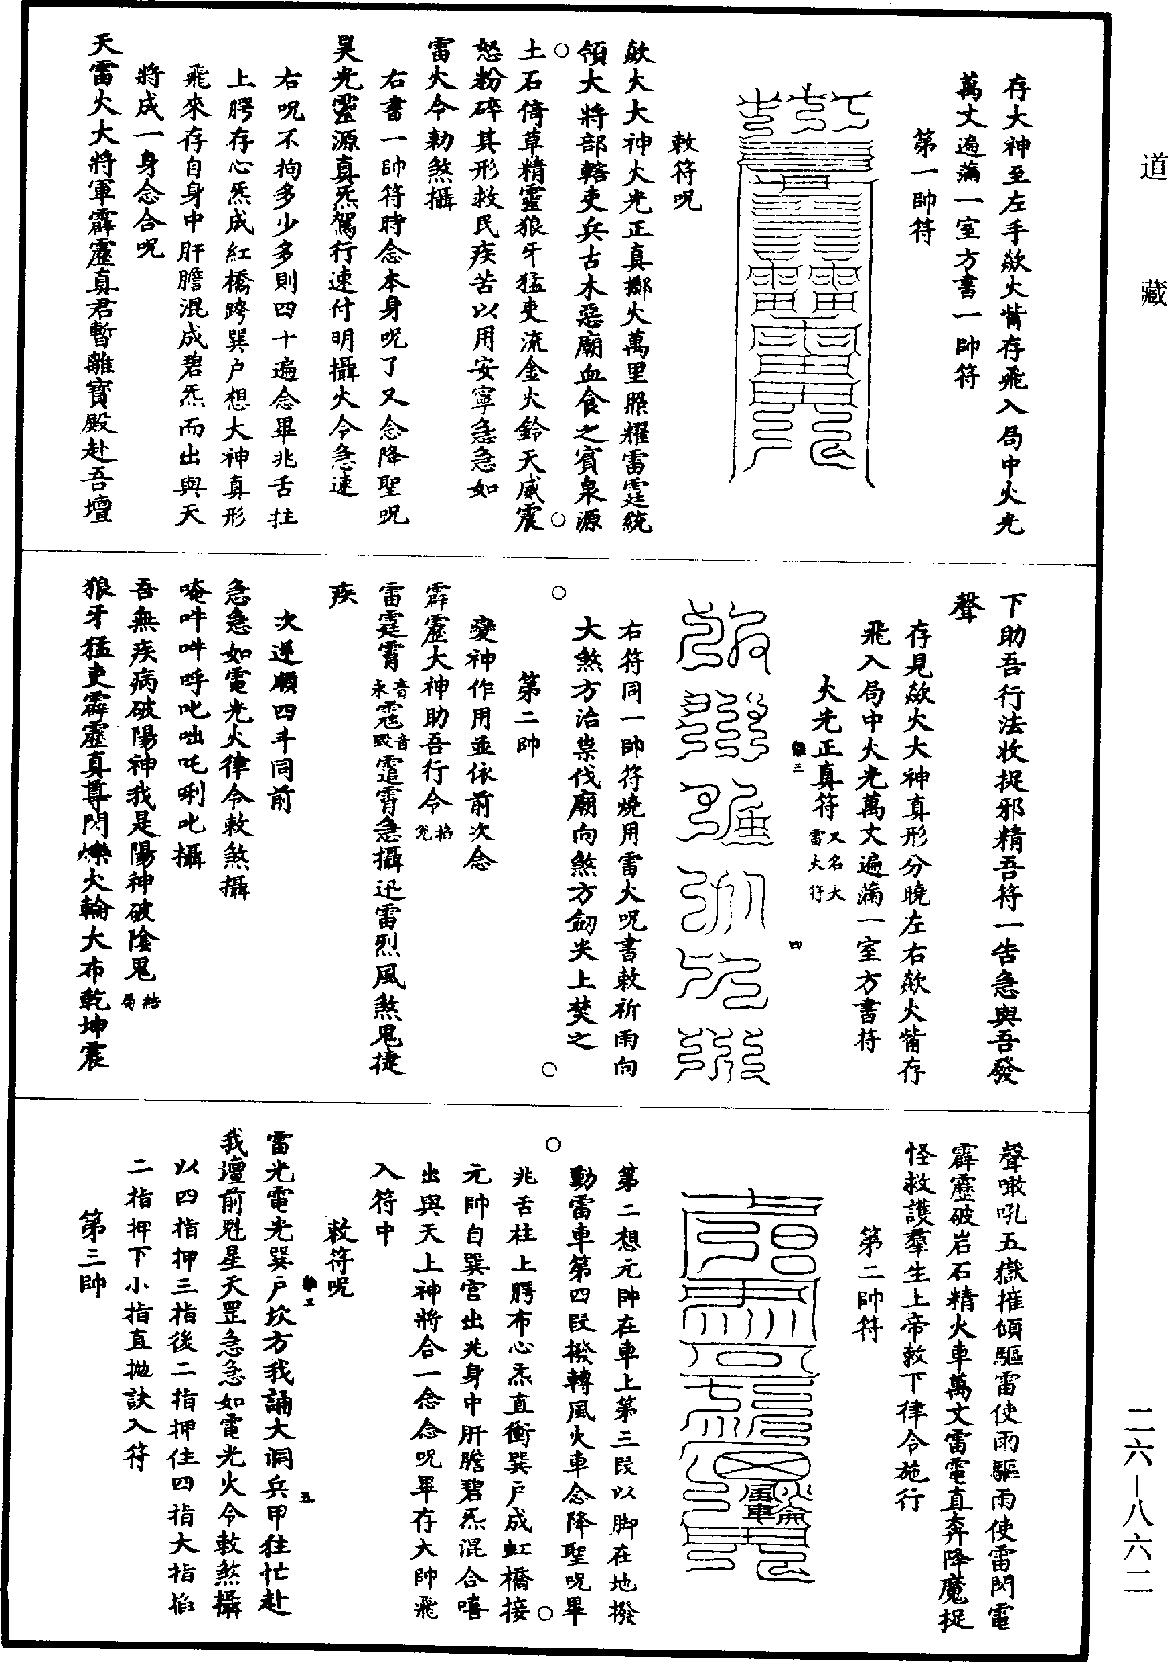 道藏
存大神至左手歘火觜存飛入局中火光
萬丈遍滿一室方書一帥符
第一帥符
敕符呪
歘火大神火光正真擲火萬里照耀雷霆統
領大將部轄吏兵古木惡廟血食之賓泉源
土石倚草精靈狼牙猛吏流金火鈴天威震
怒粉碎其形救民疾苦以用安寧急急如
雷火令勑煞攝
右書一帥符時念本身呪了又念降聖呪
昊光靈源真炁駕行速付明攝火令急速
右呪不拘多少多則四十遍念畢兆舌拄
上腭存心炁成紅橋跨巽户想大神真形
飛來存自身中肝膽混成碧炁而出與天
將成一身念合呪
天雷火大將軍霹靂真君暫離寶殿赴吾壇
下助吾行法收捉邪精吾符一告急與吾發
聲
存見歘火大神真形分曉左右歘火觜存
飛入局中火光萬丈遍滿一室方書符
火光正真符又名大雷火符
三
四
右符同一帥符燒用雷火呪書敕祈雨向
大煞方治祟伐廟向煞方劒尖上焚之
第二帥
變神作用並依前次念
霹靂大神助吾行令
雷霆霄音永音急攝迅雷烈風煞鬼捷
疾
次逆順四斗同前
急急如電光火律令敕煞攝
唵吽吽呼叱咄吒唎叱攝
吾無疾病破陽神我是陽神破陰鬼
狼牙猛吏霹靂真尊閃爍火輪大布乾坤震
聲噉吼五嶽摧傾驅雷使雨驅雨使雷閃電
霹靂破岩石精火車萬丈雷電直奔降魔捉
怪救護羣生上帝敕下律令施行
第二帥符
火輪
風車
第二想元帥在車上第三段以脚在地撥
動雷車第四段撥轉風火車念降聖呪畢
兆舌柱上腭布心炁直衝巽户成虹橋接
元帥自巽宫出兆身中肝膽碧炁混合嘻
出與天上神將合一念念呪畢存大帥飛
入符中
敕符呪
五
雷光電光巽户坎方我誦大洞兵甲往忙赴
我壇前魁星天罡急急如電光火令敕煞攝
以四指押三指後二指押住四指大指掐
二指押下小指直拋訣入符
第三帥
二六—八六二